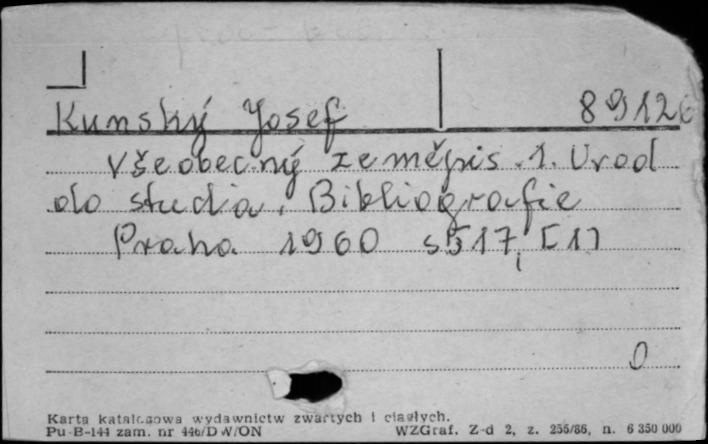 Kunský Josef 89126
Všeobecný zeměpis. 1. Uvod
do studia. Bibliografie
Praha 1960 s 517, [1]
0
Karta katalogowa wydawnictw zwartych i ciągłych.
Pu-B-144 zam. nr 446/DW/ON WZGraf. Z-d 2, z. 256/86, n. 6 350 000